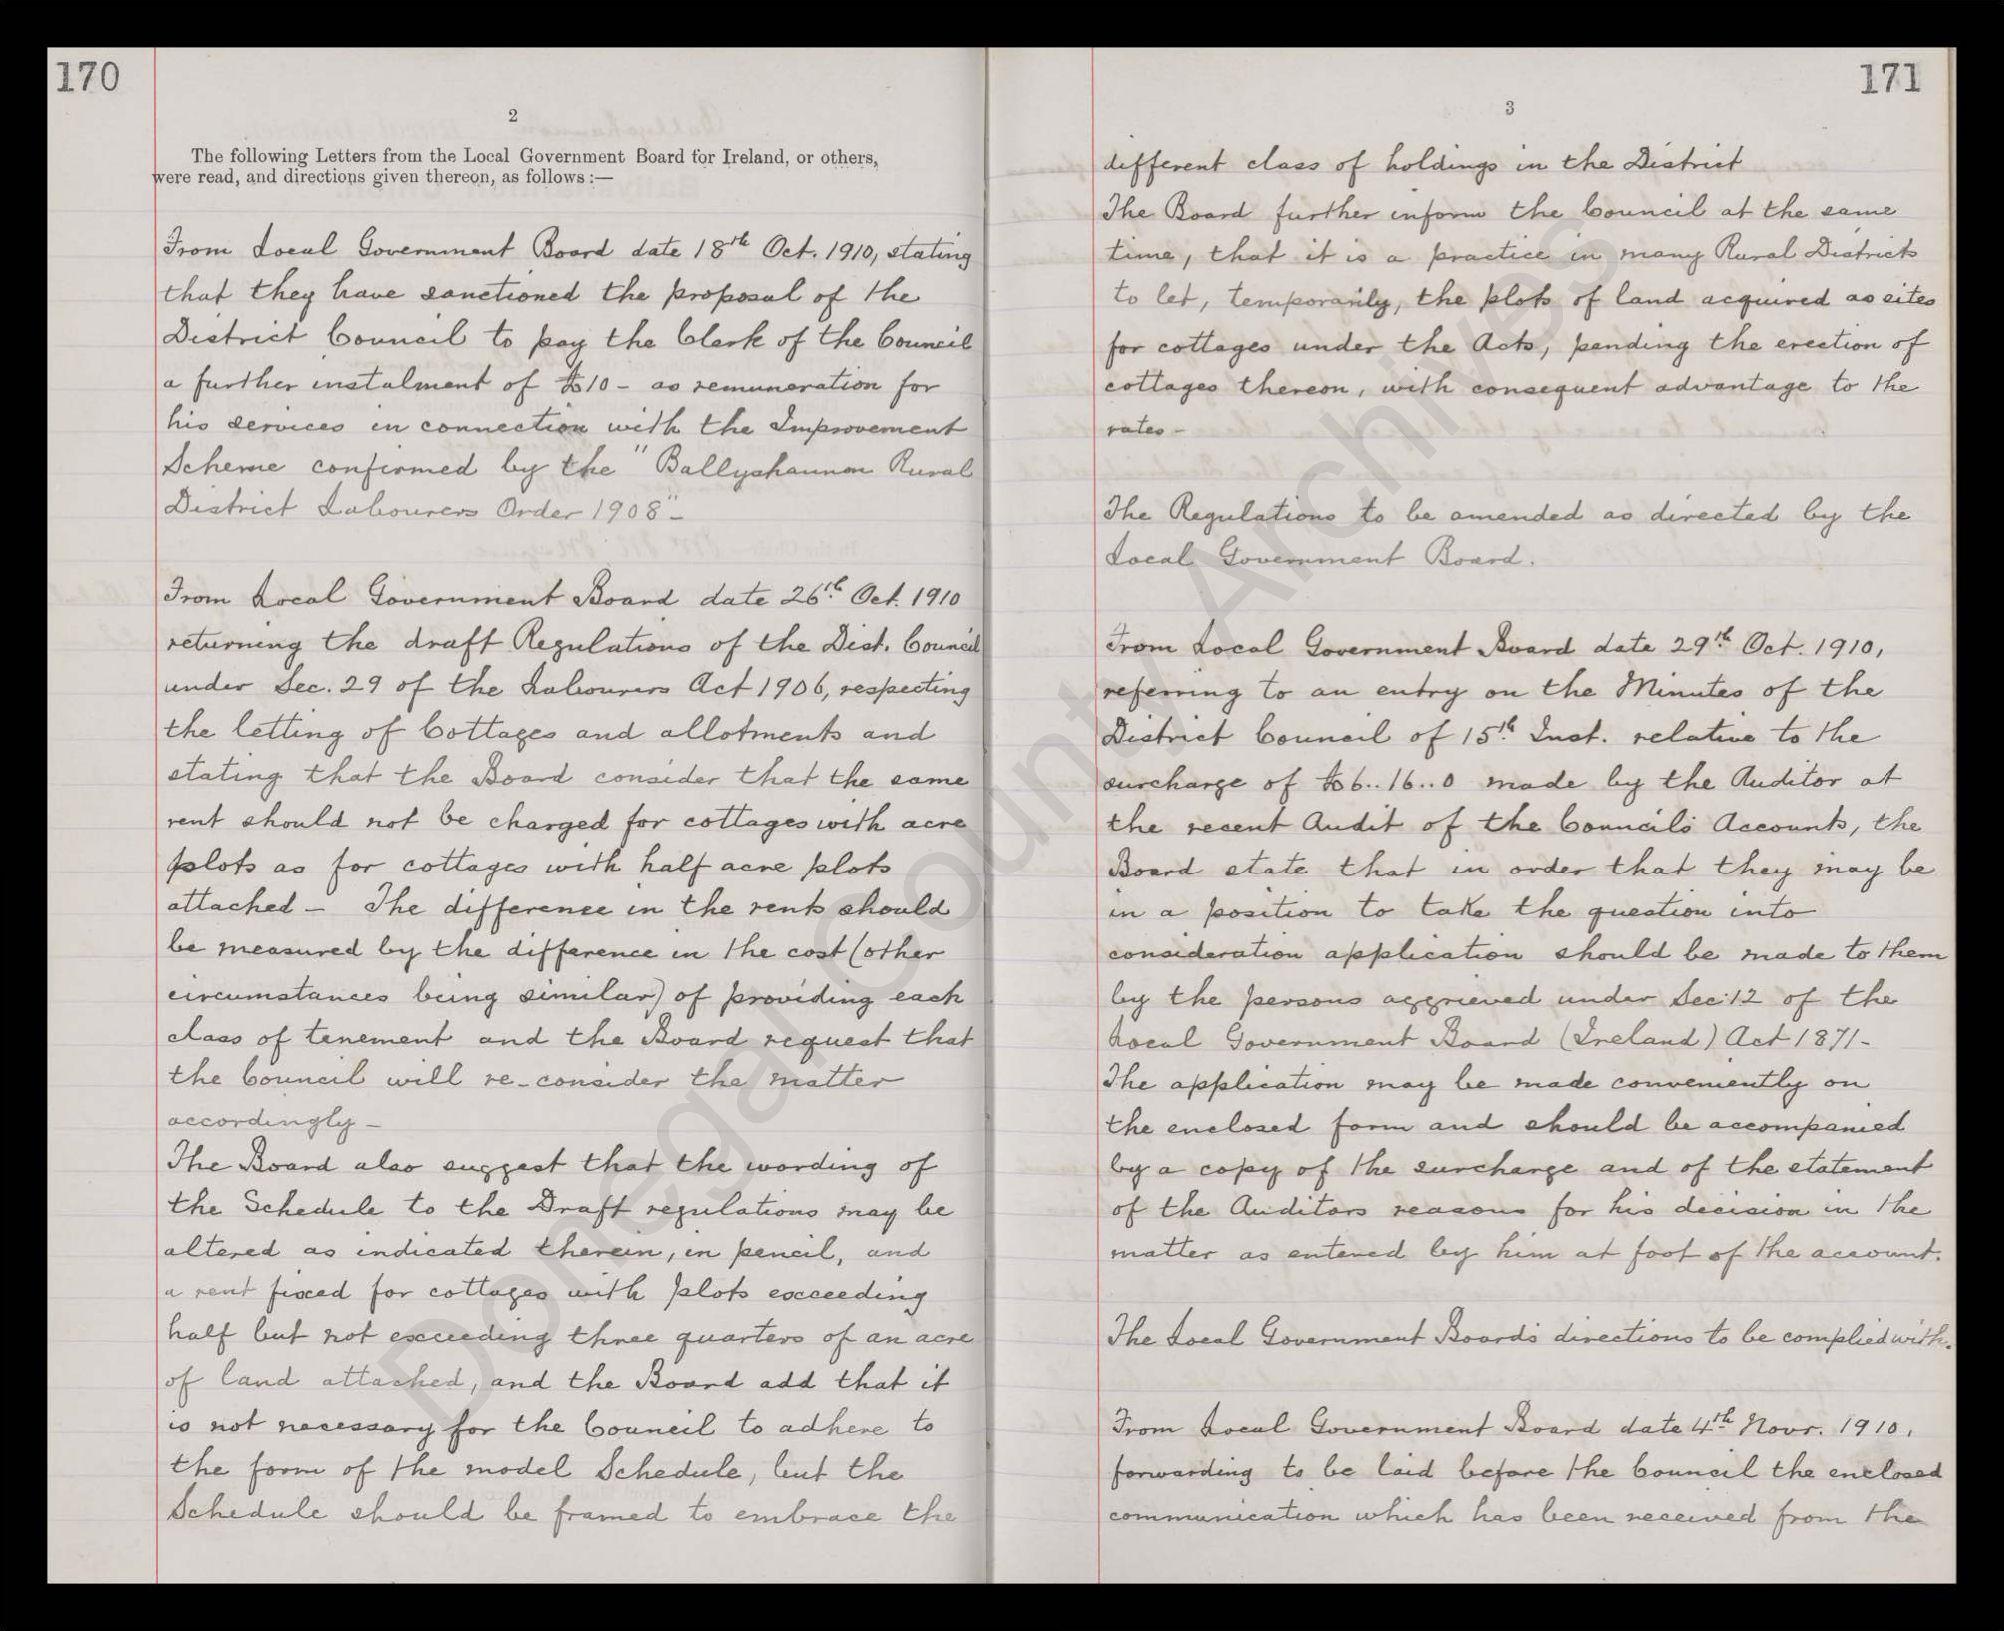 170
2
The following Letters from the Local Government Board for Ireland, or others,
were read, and directions given thereon, as follows :—
From Local Government Board date 18th Oct. 1910, stating
that they have sanctioned the proposal of the
District Council to pay the Clerk of the Council
a further instalment of £10 - as remuneration for
his services in connection with the Improvement
Scheme confirmed by the "Ballyshannon Rural
District Labourers Order 1908" -
From Local Government Board date 26th Oct. 1910
returning the draft Regulations of the Dist. Council
under Sec. 29 of the Labourers Act 1906, respecting
the letting of Cottages and allotments and
stating that the Board consider that the same
rent should not be charged for cottages with acre
plots as for cottages with half acre plots
attached - The difference in the rents should
be measured by the difference in the cost (other
circumstances being similar) of providing each
class of tenement and the Board request that
the Council will re-consider the matter
accordingly -
The Board also suggest that the wording of
the Schedule to the Draft regulations may be
altered as indicated therein, in pencil, and
a rent fixed for cottages with plots exceeding
half but not exceeding three quarters of an acre
of land attached, and the Board add that it
is not necessary for the Council to adhere to
the form of the model Schedule, but the
Schedule should be framed to embrace the
171
3
different class of holdings in the District
The Board further inform the Council at the same
time, that it is a practice in many Rural Districts
to let, temporarily, the plots of land acquired as sites
for cottages under the Acts, pending the erection of
cottages thereon, with consequent advantage to the
rates -
The Regulations to be amended as directed by the
Local Government Board.
From Local Government Board date 29th Oct. 1910,
referring to an entry on the Minutes of the
District Council of 15th Inst. relative to the
surcharge of £6..16..0 made by the Auditor at
the recent Audit of the Councils Accounts, the
Board state that in order that they may be
in a position to take the question into
consideration application should be made to them
by the persons aggrieved under Sec: 12 of the
Local Government Board (Ireland) Act 1871 -
The application may be made conveniently on
the enclosed form and should be accompanied
by a copy of the surcharge and of the statement
of the Auditors reasons for his decision in the
matter as entered by him at foot of the account.
The Local Government Boards directions to be complied with.
From Local Government Board date 4th Novr. 1910,
forwarding to be laid before the Council the enclosed
communication which has been received from the
Donegal County Archives